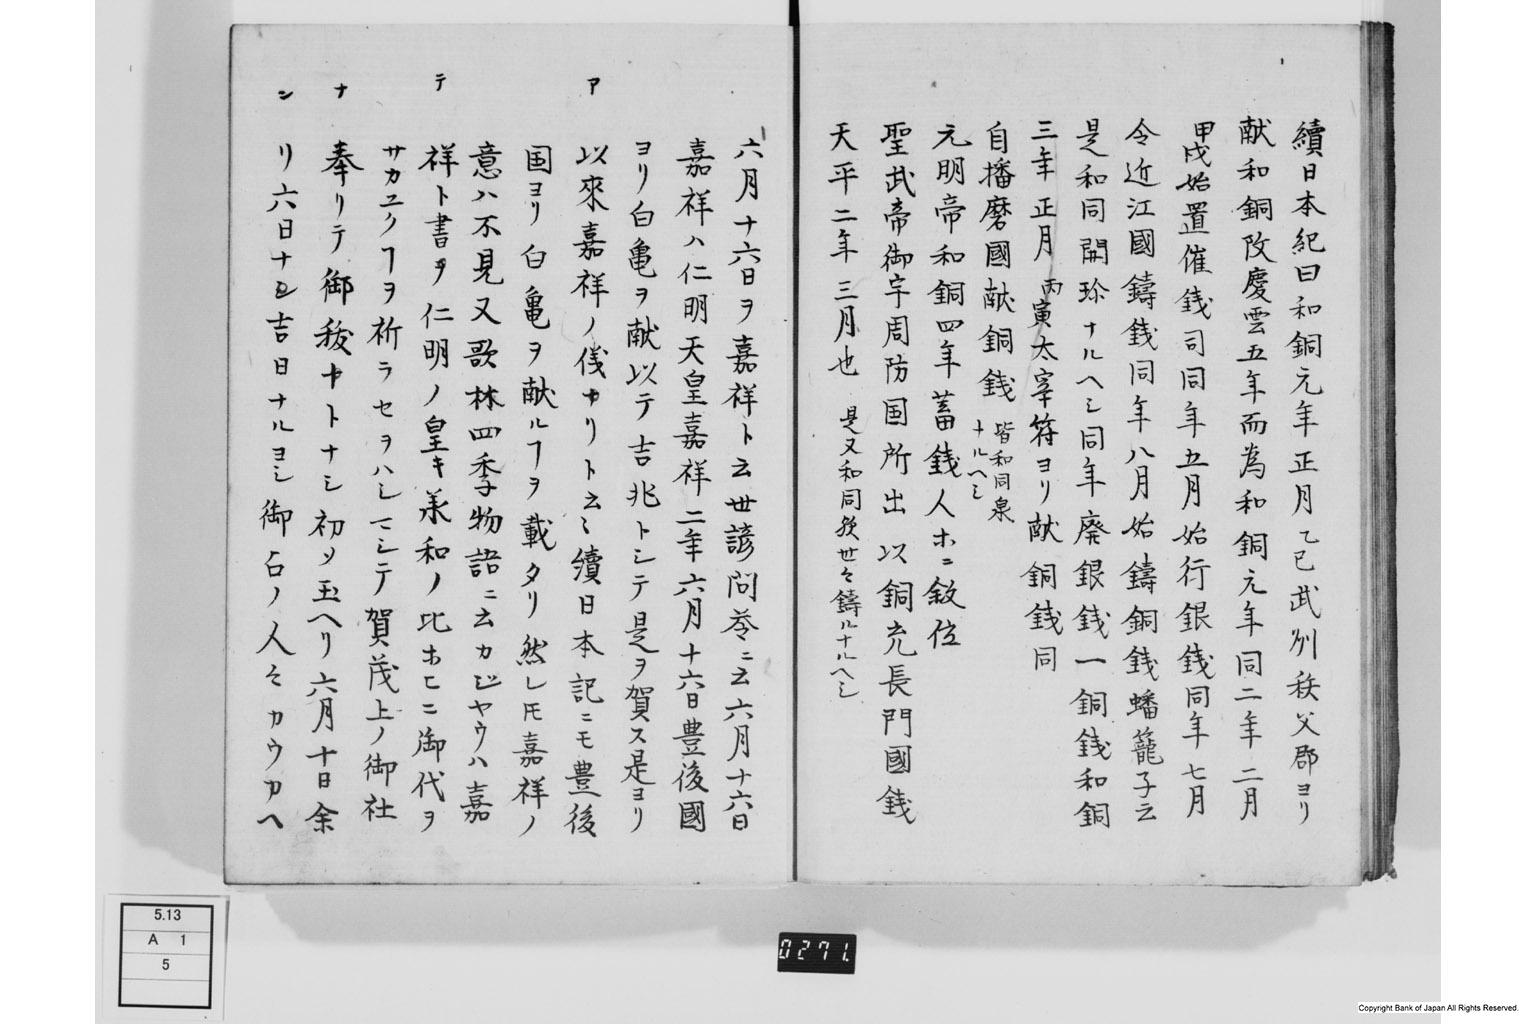 續日本紀曰和銅元年正月乙巳武州秩父郡ヨリ
献和銅改慶雲五年而為和銅元年同二年二月
甲戌始置催銭司同年五月始行銀銭同年七月
令近江國鑄銭同年八月始鑄銅銭蟠龍子云
是和同開珎ナルヘシ同年廃銀銭一銅銭和銅
三年正月丙寅太宰府ヨリ献銅銭同
自播磨國献銅銭 皆和同泉
ナルヘシ
元明帝和銅四年蓄銭人ホニ敘位
聖武帝御宇周防国所出以銅充長門國銭
天平二年三月也 是又和同後世々鑄ルナルヘシ
六月十六日ヲ嘉祥ト云世諺問荅ニ云六月十六日
嘉祥ハ仁明天皇嘉祥二年六月十六日豊後國
ヨリ白亀ヲ献以テ吉兆トシテ是ヲ賀ス是ヨリ
ア
以來嘉祥ノ儀ナリト云〻續日本記ニモ豊後
国ヨリ白亀ヲ献ルヿヲ載タリ然レ𪜈嘉祥ノ
意ハ不見又歌林四季物語ニ云カジヤウハ嘉
テ
祥ト書ヲ仁明ノ皇キ承和ノ比ホヒニ御代ヲ
サカユクヿヲ祈ラセヲハシマシテ賀茂上ノ御社
ナ
奉リテ御秡ヤトナシ初ヲ玉ヘリ六月十日余
ン
リ六日ナン吉日ナルヨシ御占ノ人々カウカヘ
5.13
A 1
5
0271.
Copyright Bank of Japan All Rights Reserved.